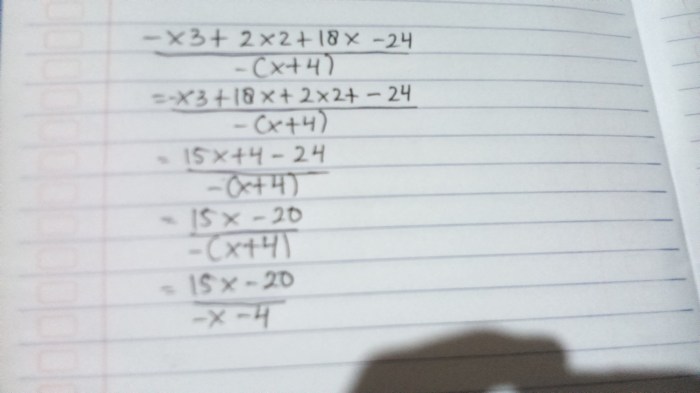 -x3+2x2+18x-24
-(x+4)
=-x3+18x+2x2+-24
-(x+4)
=15x+4-24
-(x+4)
=15x-20
-(x+4)
=15x-20
-x-4